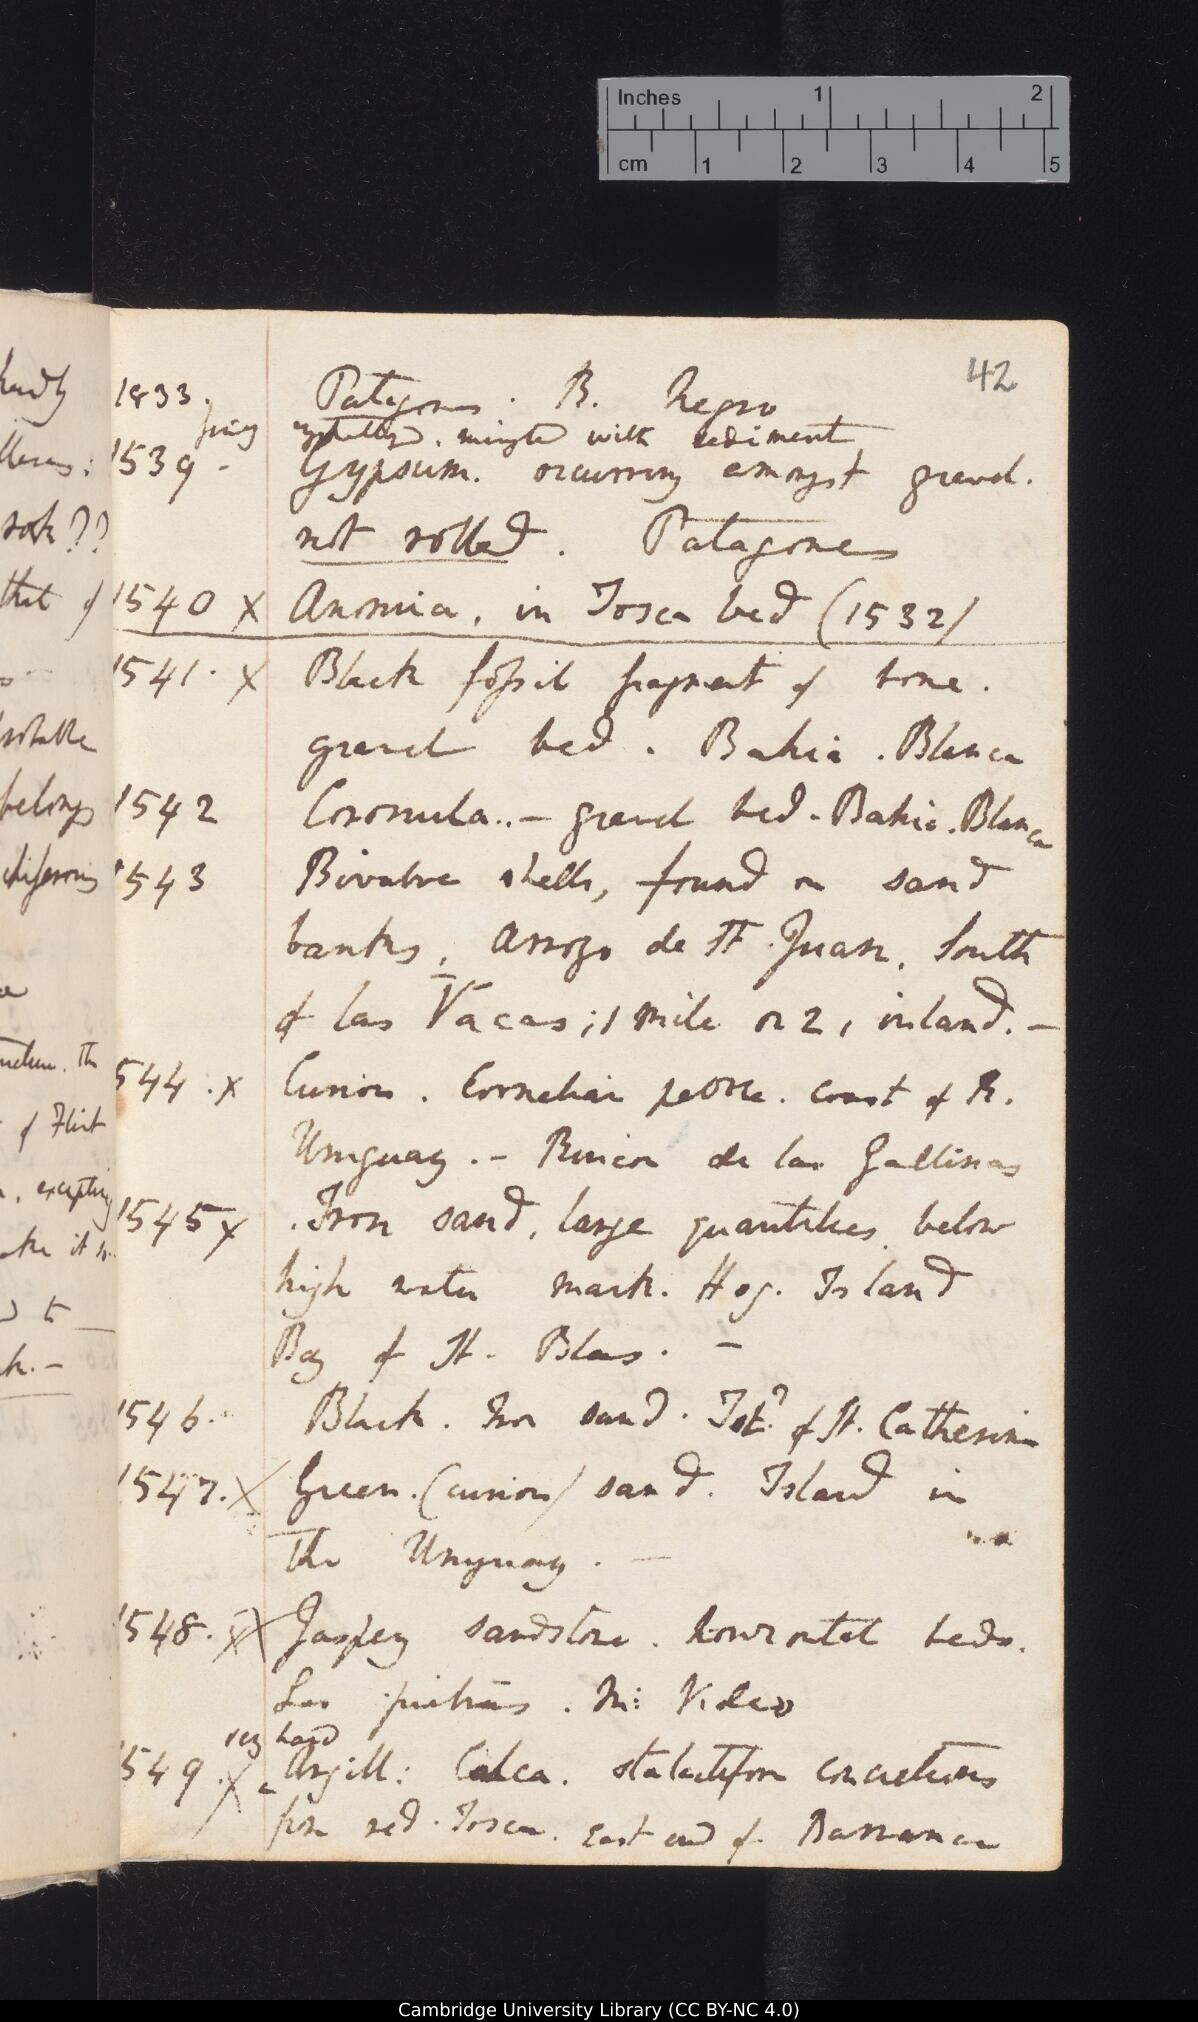 Inches 1 2
cm 1 2 3 4 5
42
1833. Patagones. R. Negro
crystallized. mingled with sediment
1539 - Gypsum. occurring amongst gravel.
not rolled. Patagones
1540 X Anomia, in Tosca bed (1532)
1541. X Black fossil fragment of bone.
gravel bed. Bahia. Blanca
1542 Coronula..— gravel bed. Bahia. Blanca
1543 Bivalve shells, found on sand
banks, Arroyo de St. Juan, South
of las Vacas; 1 mile or 2, inland.—
1544. X Curious. Cornelian pebble. coast of R.
Uruguay.— Rincon de las Gallinas
1545 X Iron sand, large quantities, below
high water mark. Hog. Island
Bay of St. Blas. —
1546. Black. Iron sand. Isd? of St. Catherine
1547. X Green. (curious) sand. Island in
the Uruguay. —
1548. X Jaspery sandstone. horizontal beds.
Las pietras. M: Video
very hard
1549. X Argill: Calca. stalactiform concretions
from red. Tosca. East end of Barranca
hardly
rock??
that of
belongs
of Flint
excepting
Cambridge University Library (CC BY-NC 4.0)